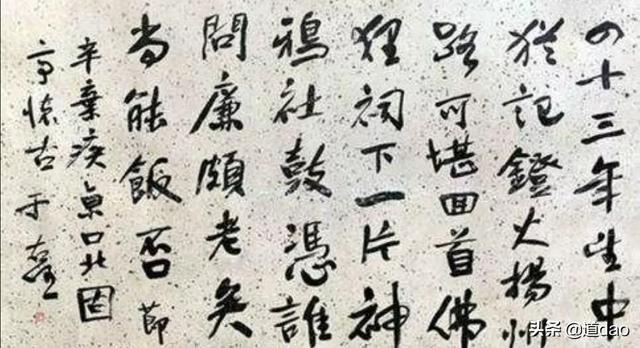 四十三年望中
犹記鐙火揚州
路可堪回首佛
狸祠下一片神
鴉社鼓憑誰
問廉頗老矣
尚能飯否 節
辛棄疾京口北固
亭懷古 于
头条 @道dao